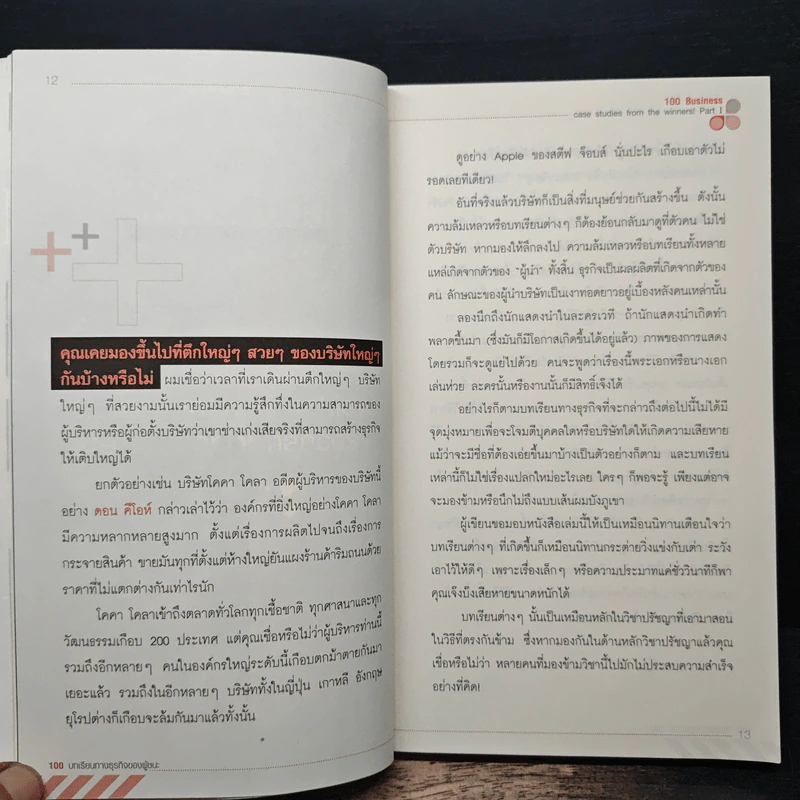 12
คุณเคยมองขึ้นไปที่ตึกใหญ่ๆ สวยๆ ของบริษัทใหญ่ๆ
กันบ้างหรือไม่ ผมเชื่อว่าเวลาที่เราเดินผ่านตึกใหญ่ๆ บริษัท
ใหญ่ๆ ที่สวยงามนั้นเราย่อมมีความรู้สึกทึ่งในความสามารถของ
ผู้บริหารหรือผู้ก่อตั้งบริษัทว่าเขาช่างเก่งเสียจริงที่สามารถสร้างธุรกิจ
ให้เติบใหญ่ได้
ยกตัวอย่างเช่น บริษัทโคคา โคลา อดีตผู้บริหารของบริษัทนี้
อย่าง ดอน คีโอห์ กล่าวเล่าไว้ว่า องค์กรที่ยิ่งใหญ่อย่างโคคา โคลา
มีความหลากหลายสูงมาก ตั้งแต่เรื่องการผลิตไปจนถึงเรื่องการ
กระจายสินค้า ขายมันทุกที่ตั้งแต่ห้างใหญ่ยันแผงร้านค้าริมถนนด้วย
ราคาที่ไม่แตกต่างกันเท่าไรนัก
โคคา โคลาเข้าถึงตลาดทั่วโลกทุกเชื้อชาติ ทุกศาสนาและทุก
วัฒนธรรมเกือบ 200 ประเทศ แต่คุณเชื่อหรือไม่ว่าผู้บริหารท่านนี้
รวมถึงอีกหลายๆ คนในองค์กรใหญ่ระดับนี้เกือบตกม้าตายกันมา
เยอะแล้ว รวมถึงในอีกหลายๆ บริษัททั้งในญี่ปุ่น เกาหลี อังกฤษ
ยุโรปต่างก็เกือบจะล้มกันมาแล้วทั้งนั้น
100 บทเรียนทางธุรกิจของผู้ชนะ
100 Business
case studies from the winners! Part I
ดูอย่าง Apple ของสตีฟ จ็อบส์ นั่นปะไร เกือบเอาตัวไม่
รอดเลยทีเดียว!
อันที่จริงแล้วบริษัทก็เป็นสิ่งที่มนุษย์ช่วยกันสร้างขึ้น ดังนั้น
ความล้มเหลวหรือบทเรียนต่างๆ ก็ต้องย้อนกลับมาดูที่ตัวคน ไม่ใช่
ตัวบริษัท หากมองให้ลึกลงไป ความล้มเหลวหรือบทเรียนทั้งหลาย
แหล่เกิดจากตัวของ "ผู้นำ" ทั้งสิ้น ธุรกิจเป็นผลผลิตที่เกิดจากตัวของ
คน ลักษณะของผู้นำบริษัทเป็นเงาทอดยาวอยู่เบื้องหลังคนเหล่านั้น
ลองนึกถึงนักแสดงนำในละครเวที ถ้านักแสดงนำเกิดทำ
พลาดขึ้นมา (ซึ่งมันก็มีโอกาสเกิดขึ้นได้อยู่แล้ว) ภาพของการแสดง
โดยรวมก็จะดูแย่ไปด้วย คนจะพูดว่าเรื่องนี้พระเอกหรือนางเอก
เล่นห่วย ละครนั้นหรืองานนั้นก็มีสิทธิ์เจ๊งได้
อย่างไรก็ตามบทเรียนทางธุรกิจที่จะกล่าวถึงต่อไปนี้ไม่ได้มี
จุดมุ่งหมายเพื่อจะโจมตีบุคคลใดหรือบริษัทใดให้เกิดความเสียหาย
แม้ว่าจะมีชื่อที่ต้องเอ่ยขึ้นมาบ้างเป็นตัวอย่างก็ตาม และบทเรียน
เหล่านี้ก็ไม่ใช่เรื่องแปลกใหม่อะไรเลย ใครๆ ก็พอจะรู้ เพียงแต่อาจ
จะมองข้ามหรือนึกไม่ถึงแบบเส้นผมบังภูเขา
ผู้เขียนขอมอบหนังสือเล่มนี้ให้เป็นเหมือนนิทานเตือนใจว่า
บทเรียนต่างๆ ที่เกิดขึ้นก็เหมือนนิทานกระต่ายวิ่งแข่งกับเต่า ระวัง
เอาไว้ให้ดีๆ เพราะเรื่องเล็กๆ หรือความประมาทแค่ชั่ววินาทีก็พา
คุณเจ๊งบึ๊งเสียหายขนาดหนักได้
บทเรียนต่างๆ นั้นเป็นเหมือนหลักในวิชาปรัชญาที่เอามาสอน
ในวิธีที่ตรงกันข้าม ซึ่งหากมองกันในด้านหลักวิชาปรัชญาแล้วคุณ
เชื่อหรือไม่ว่า หลายคนที่มองข้ามวิชานี้ไปมักไม่ประสบความสำเร็จ
อย่างที่คิด!
13